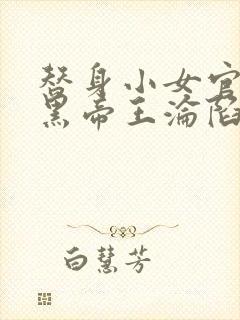 替身小女官
黑帝王淪陷
白慧芳